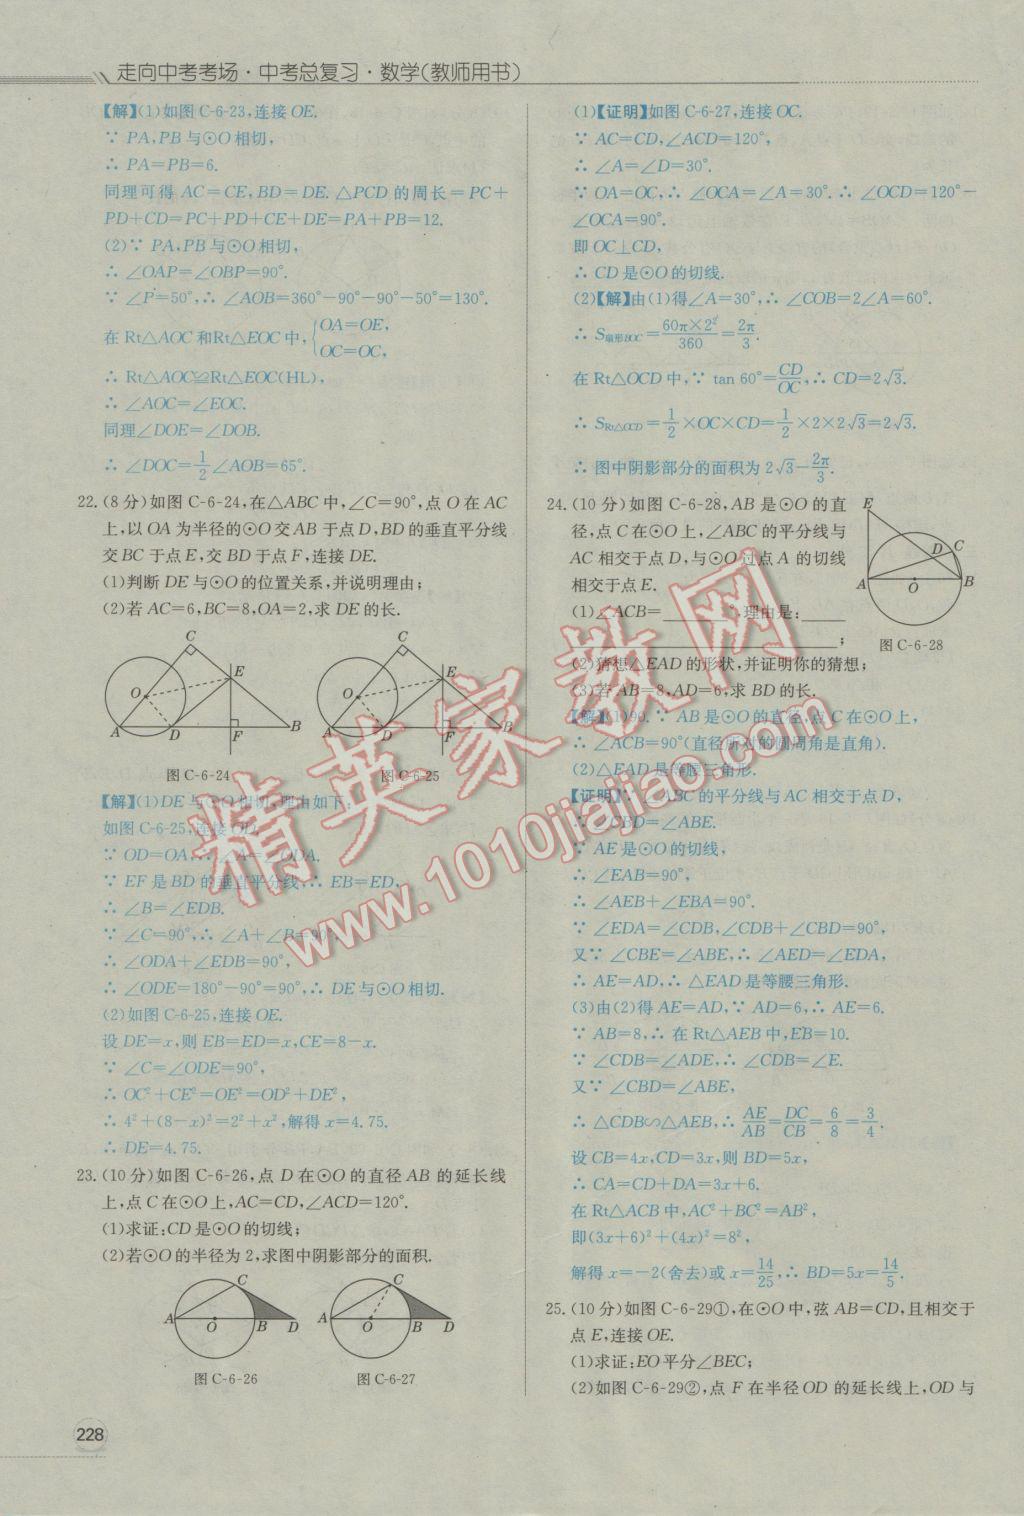 走向中考考场·中考总复习·数学(教师用书)
【解】(1)如图 C-6-23,连接 OE.
∵ PA,PB 与⊙O 相切,
∴ PA=PB=6.
同理可得 AC=CE,BD=DE.△PCD 的周长=PC+
PD+CD=PC+PD+CE+DE=PA+PB=12.
(2)∵ PA,PB 与⊙O 相切,
∴ ∠OAP=∠OBP=90°.
∵ ∠P=50°,∴ ∠AOB=360°-90°-90°-50°=130°.
在 Rt△AOC 和Rt△EOC 中,{OA=OE,
OC=OC,
∴ Rt△AOC≌Rt△EOC(HL),
∴ ∠AOC=∠EOC.
同理∠DOE=∠DOB.
∴ ∠DOC=1/2∠AOB=65°.
22.(8 分)如图 C-6-24,在△ABC 中,∠C=90°,点 O 在 AC
上,以 OA 为半径的⊙O 交 AB 于点 D,BD 的垂直平分线
交 BC 于点 E,交 BD 于点 F,连接 DE.
(1)判断 DE 与⊙O 的位置关系,并说明理由;
(2)若 AC=6,BC=8,OA=2,求 DE 的长.
C E O A D F B
C E O A D F B
图 C-6-24 图 C-6-25
【解】(1)DE 与⊙O 相切.理由如下:
如图 C-6-25,连接 OD.
∵ OD=OA,∴ ∠A=∠ODA.
∵ EF 是 BD 的垂直平分线,∴ EB=ED,
∴ ∠B=∠EDB.
∵ ∠C=90°,∴ ∠A+∠B=90°.
∴ ∠ODA+∠EDB=90°,
∴ ∠ODE=180°-90°=90°,∴ DE与⊙O 相切.
(2)如图 C-6-25,连接 OE.
设 DE=x,则 EB=ED=x,CE=8-x.
∵ ∠C=∠ODE=90°,
∴ OC²+CE²=OE²=OD²+DE²,
∴ 4²+(8-x)²=2²+x²,解得 x=4.75.
∴ DE=4.75.
23.(10 分)如图 C-6-26,点 D 在⊙O 的直径 AB 的延长线
上,点 C 在⊙O 上,AC=CD,∠ACD=120°.
(1)求证:CD 是⊙O 的切线;
(2)若⊙O 的半径为 2,求图中阴影部分的面积.
C A O B D
C A O B D
图 C-6-26 图 C-6-27
228
(1)【证明】如图 C-6-27,连接 OC.
∵ AC=CD,∠ACD=120°,
∴ ∠A=∠D=30°.
∵ OA=OC,∴ ∠OCA=∠A=30°.∴ ∠OCD=120°-
∠OCA=90°.
即 OC⊥CD,
∴ CD 是⊙O 的切线.
(2)【解】由(1)得∠A=30°,∴ ∠COB=2∠A=60°.
∴ S扇形BOC=60π×2²/360=2π/3.
在 Rt△OCD 中,∵ tan 60°=CD/OC,∴ CD=2√3.
∴ SRt△OCD=1/2×OC×CD=1/2×2×2√3=2√3.
∴ 图中阴影部分的面积为 2√3-2π/3.
24.(10 分)如图 C-6-28,AB 是⊙O 的直
径,点 C 在⊙O 上,∠ABC 的平分线与
AC 相交于点 D,与⊙O 过点 A 的切线
相交于点 E.
(1)∠ACB=______°,理由是:______
______;
E D C A O B
图 C-6-28
(2)猜想△EAD 的形状,并证明你的猜想;
(3)若 AB=8,AD=6,求 BD 的长.
【解】(1)90.∵ AB 是⊙O 的直径,点 C 在⊙O 上,
∴ ∠ACB=90°(直径所对的圆周角是直角).
(2)△EAD 是等腰三角形.
【证明】∵ ∠ABC 的平分线与 AC 相交于点 D,
∴ ∠CBD=∠ABE.
∵ AE 是⊙O 的切线,
∴ ∠EAB=90°,
∴ ∠AEB+∠EBA=90°.
∵ ∠EDA=∠CDB,∠CDB+∠CBD=90°,
又∵ ∠CBE=∠ABE,∴ ∠AED=∠EDA,
∴ AE=AD,∴ △EAD 是等腰三角形.
(3)由(2)得 AE=AD,∵ AD=6,∴ AE=6.
∵ AB=8,∴ 在 Rt△AEB 中,EB=10.
∵ ∠CDB=∠ADE,∴ ∠CDB=∠E.
又∵ ∠CBD=∠ABE,
∴ △CDB∽△AEB,∴ AE/AB=DC/CB=6/8=3/4.
设 CB=4x,CD=3x,则 BD=5x,
∴ CA=CD+DA=3x+6.
在 Rt△ACB 中,AC²+BC²=AB²,
即(3x+6)²+(4x)²=8²,
解得 x=-2(舍去)或 x=14/25,∴ BD=5x=14/5.
25.(10 分)如图 C-6-29①,在⊙O 中,弦 AB=CD,且相交于
点 E,连接 OE.
(1)求证:EO 平分∠BEC;
(2)如图 C-6-29②,点 F 在半径 OD 的延长线上,OD 与
精英家教网
www.1010jiajiao.com